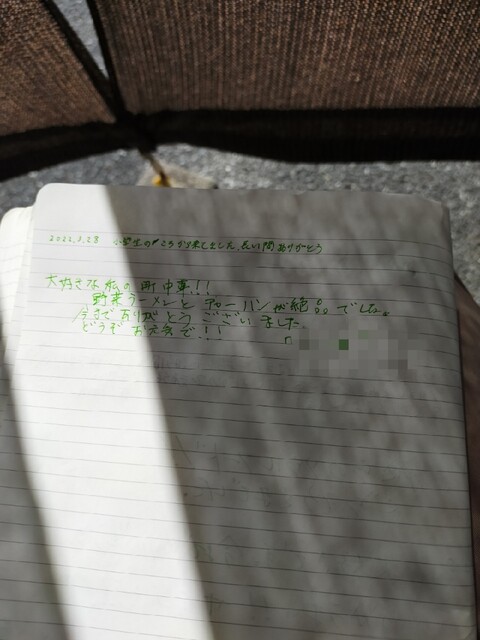 2022.3.28 小学生のころから来てました。長い間ありがとう
大好きな私の町中華!!
野菜ラーメンとチャーハンが絶品でした。
今までありがとうございました。
どうぞお元気で!!